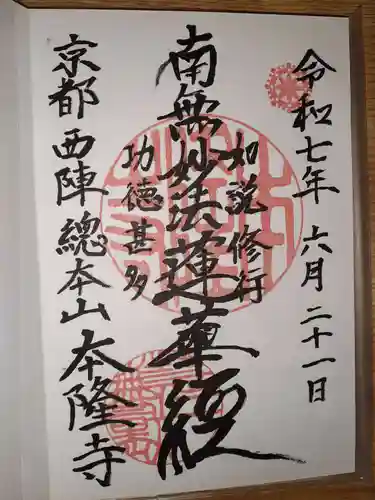 令和七年 六月 二十一日
如説修行
南無妙法蓮華經
功德甚多
京都 西陣 總本山 本隆寺